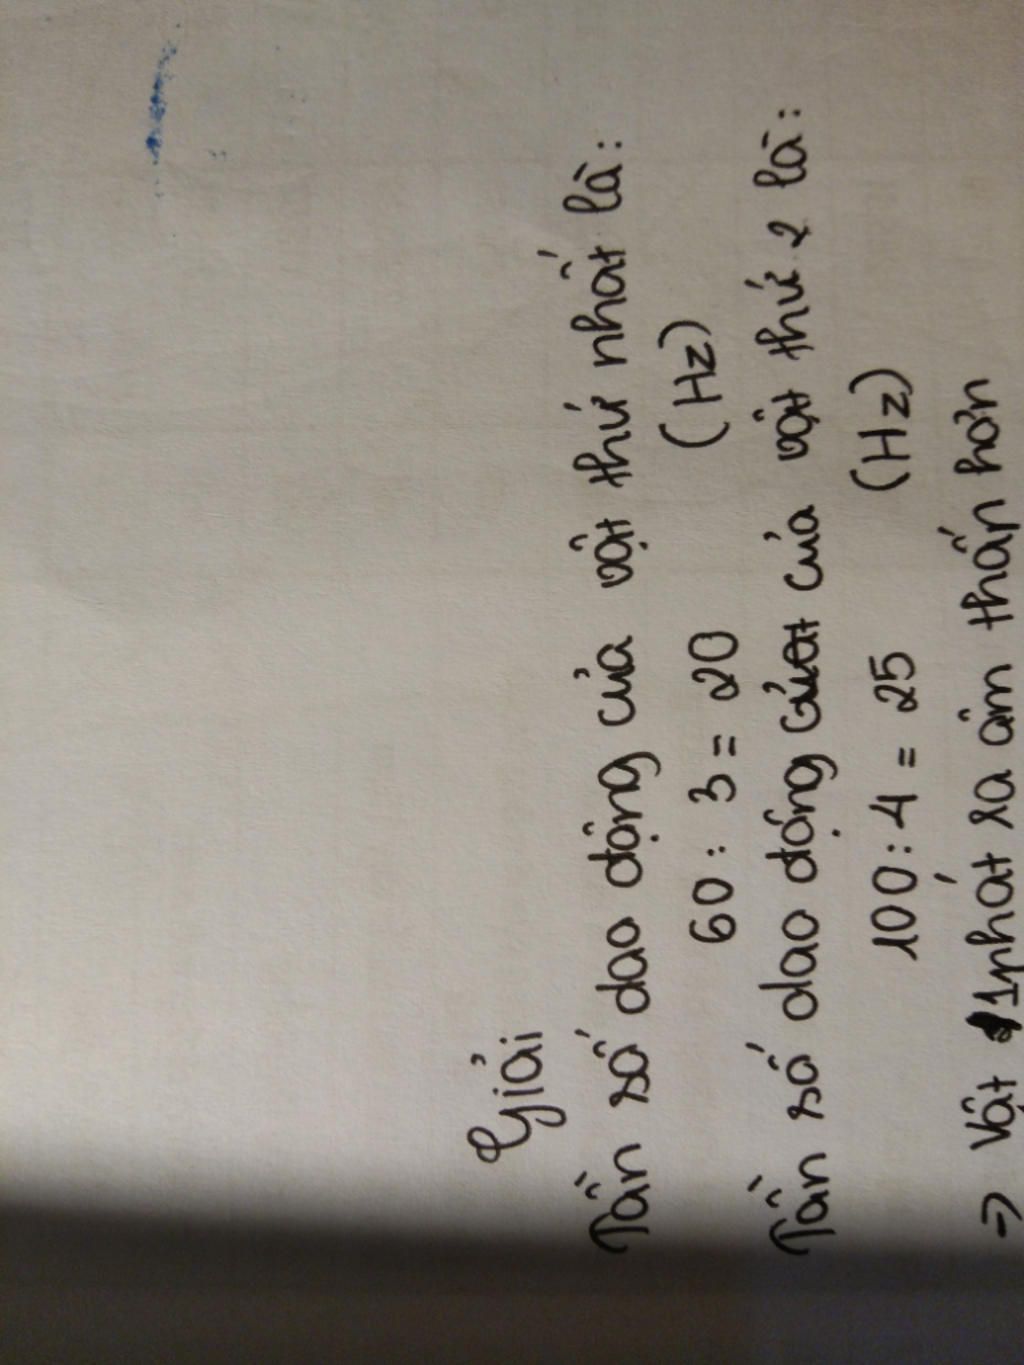 Giải
Tần số dao động của vật thứ nhất là:
60 : 3 = 20 (Hz)
Tần số dao động của vật thứ 2 là:
100 : 4 = 25 (Hz)
=> Vật 1 phát ra âm thấp hơn